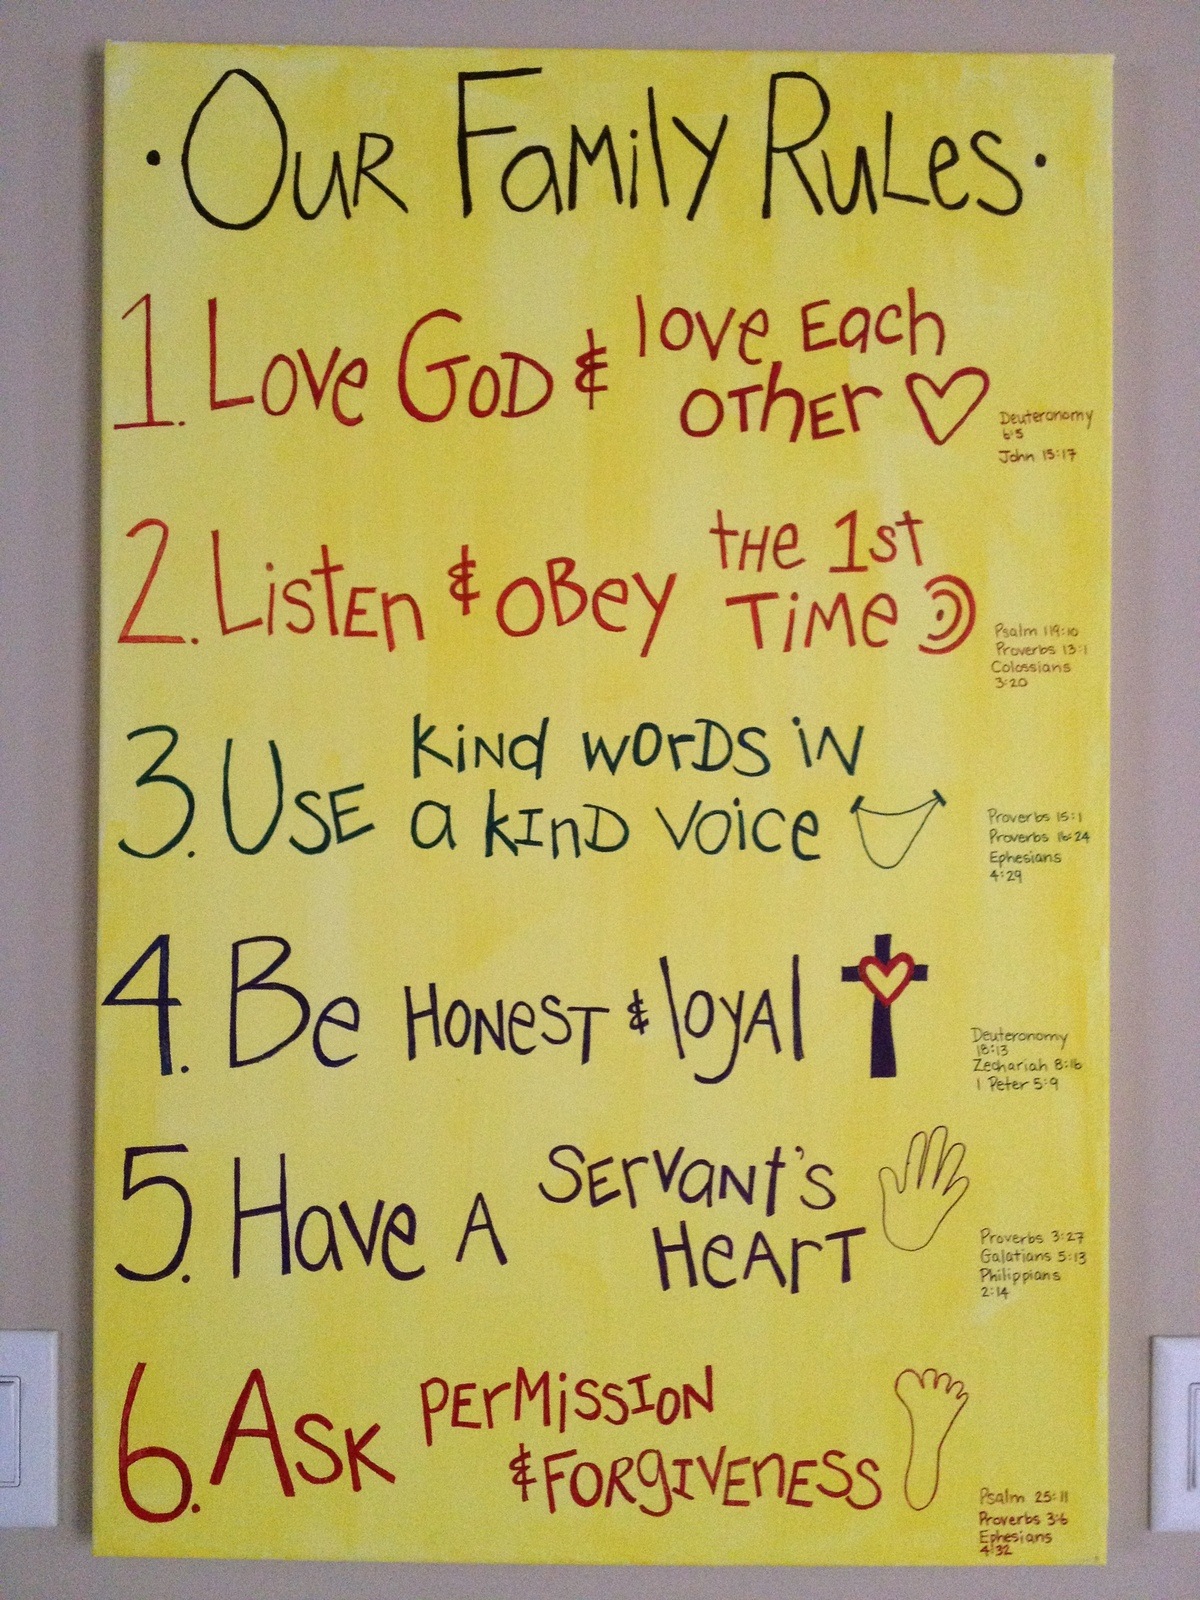 · Our Family Rules ·
1. Love God & love Each
Other
Deuteronomy
6:5
John 15:17
2. Listen & Obey the 1st
Time
Psalm 119:10
Proverbs 13:1
Colossians
3:20
3. Use kind words in
a kind voice
Proverbs 15:1
Proverbs 16:24
Ephesians
4:29
4. Be Honest & loyal
Deuteronomy
18:13
Zechariah 8:16
1 Peter 5:9
5. Have A Servant's
Heart
Proverbs 3:27
Galatians 5:13
Philippians
2:14
6. Ask Permission
& Forgiveness
Psalm 25:11
Proverbs 3:6
Ephesians
4:32